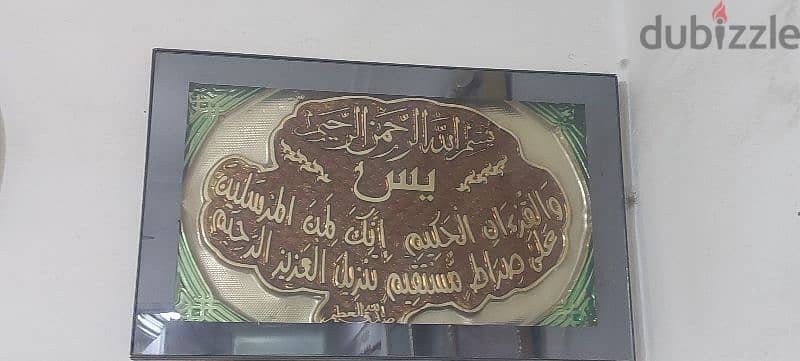 dubizzle
بسم الله الرحمن الرحيم
يس
والقرءان الحكيم إنك لمن المرسلين
على صراط مستقيم تنزيل العزيز الرحيم
صدق الله العظيم